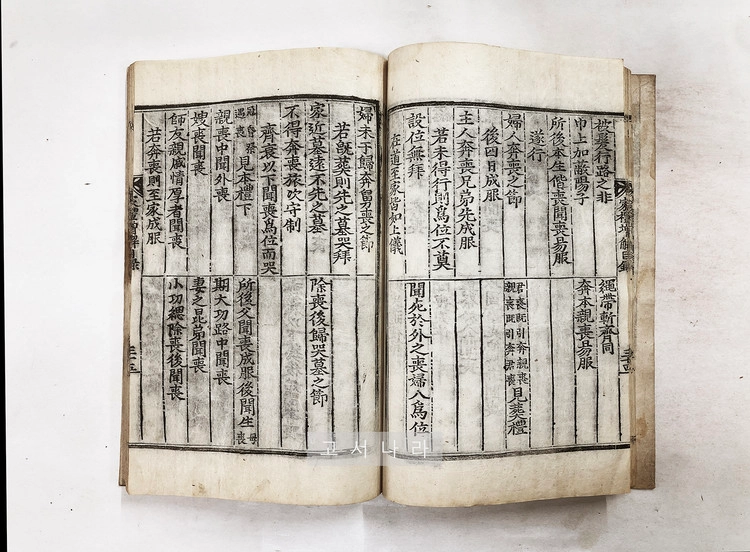 被髮行路之非
繩帶斬齊同
巾上加蔽陽子
奔本親喪易服
所後本生偕喪聞喪易服
遂行
婦人奔喪之節
君喪旣引奔親喪
親喪旣引奔君喪
見葬禮
後四日成服
主人奔喪兄弟先成服
若未得行則爲位不奠
設位無拜
聞死於外之喪婦人爲位
在道至家皆如上儀
家禮增解目錄
婦未于歸奔舅喪之節
若旣葬則先之墓哭拜
家近墓遠不先之墓
除喪後歸哭墓之節
不得奔喪旅次守制
齊衰以下聞喪爲位而哭
冠昏祭
遇喪
見本禮下
所後父聞喪成服後聞生
母喪
親喪中聞外喪
期大功路中聞喪
嫂喪聞喪
妻之昆弟聞喪
師友親戚情厚者聞喪
小功緦除喪後聞喪
若奔喪則至家成服
고서나라